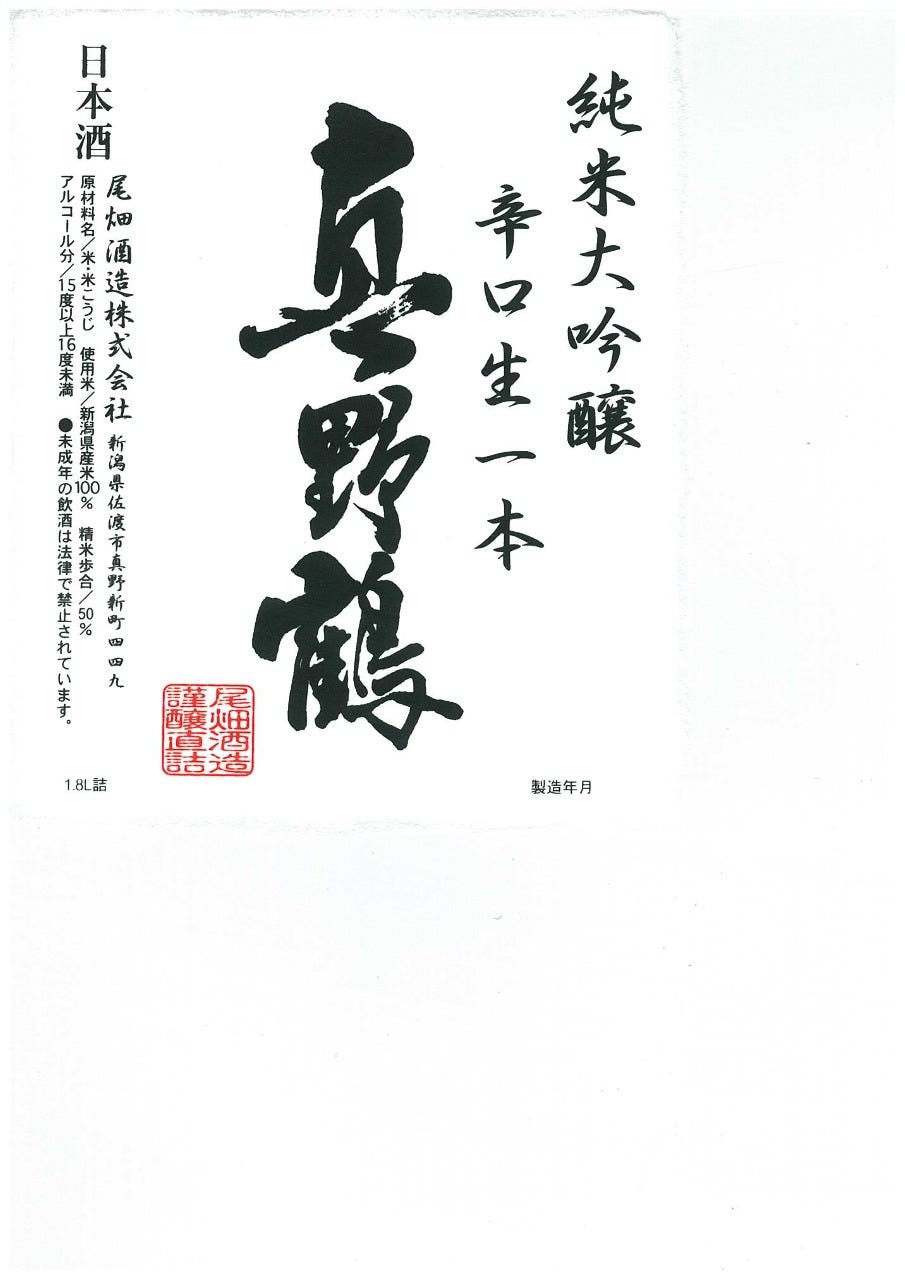 純米大吟醸
辛口生一本
真野鶴
尾畑酒造
謹醸直詰
日本酒
尾畑酒造株式会社 新潟県佐渡市真野新町四四九
原材料名／米・米こうじ 使用米／新潟県産米100% 精米歩合／50%
アルコール分／15度以上16度未満 ●未成年の飲酒は法律で禁止されています。
1.8L詰
製造年月